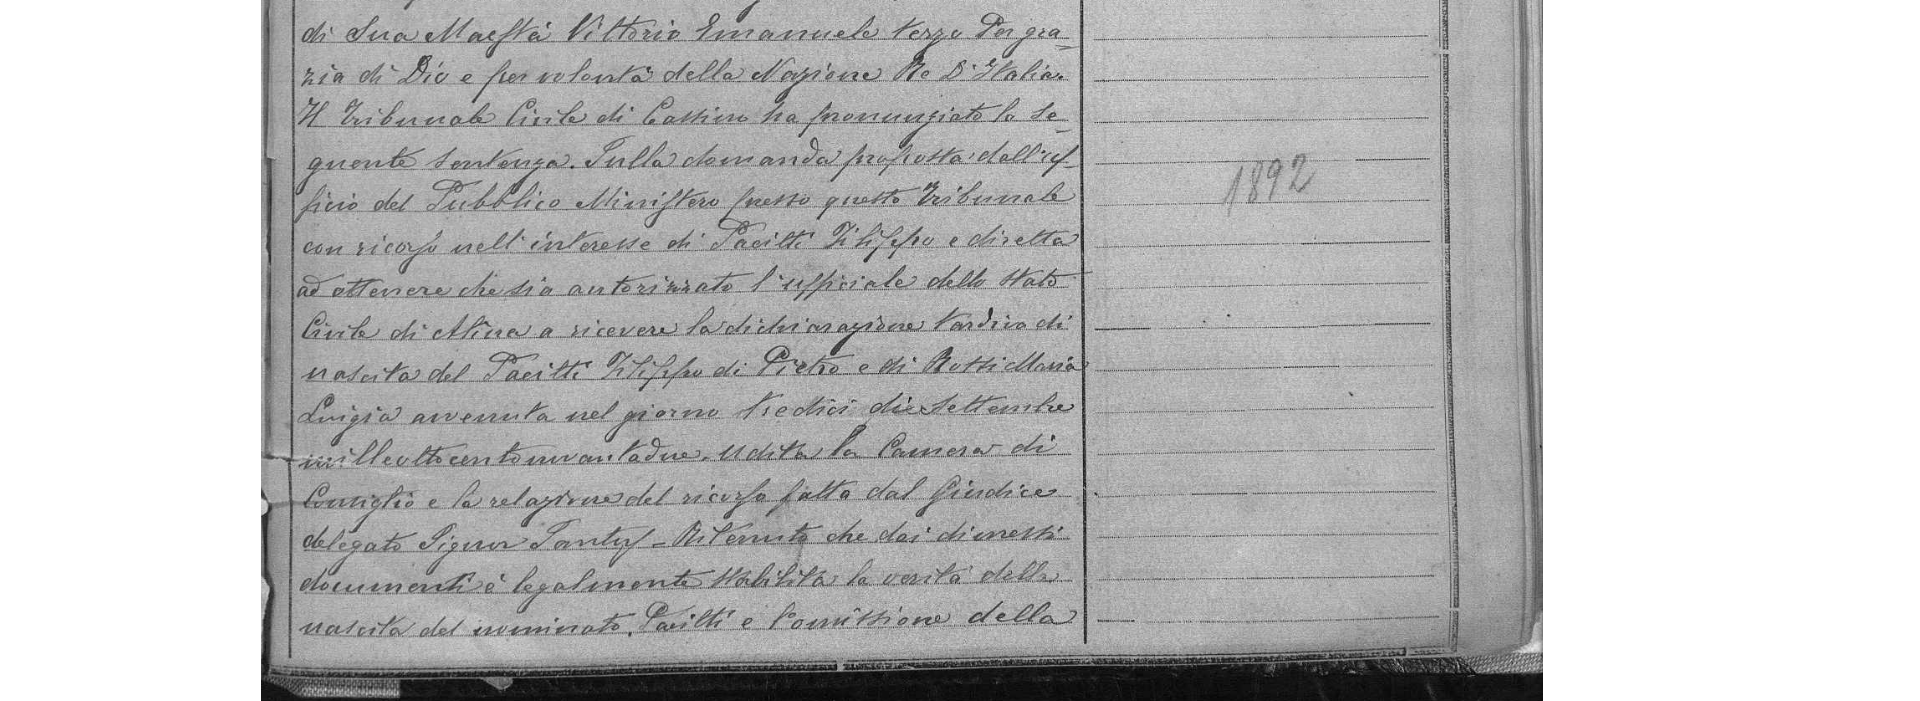 di Sua Maestà Vittorio Emanuele terzo Per gra=
zia di Dio e per volontà della Nazione Re D'Italia.
Il Tribunale Civile di Cassino ha pronunziato la se=
guente sentenza. Sulla domanda proposta dall'uf-
ficio del Pubblico Ministero presso questo Tribunale
1892
con ricorso nell'interesse di Pacitti Filippo e diretta
ad ottenere che sia autorizzato l'ufficiale dello Stato
Civile di Atina a ricevere la dichiarazione tardiva di
nascita del Pacitti Filippo di Pietro e di Rossi Maria
Luigia avvenuta nel giorno tredici di Settembre
milleottocentonovantadue. Udita la Camera di
Consiglio e la relazione del ricorso fatta dal Giudice
delegato Signor - Ritenuto che dai dimessi
documenti è legalmente stabilita la verità della
nascita del nominato Pacitti e l'omissione della